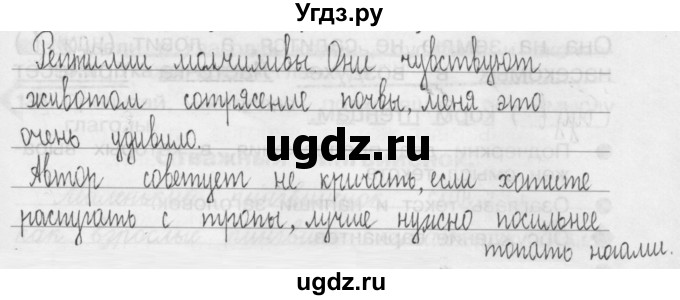 Угдз.ру
Рептилии молчиливы. Они чувствуют
животом сотрясение почвы, меня это
очень удивило.
Автор советует не кричать, если хотите
распугать с тропы, лучше нужно посильнее
топать ногами.
ugdz.ru
ugdz.ru
ugdz.ru
ugdz.ru
ugdz.ru